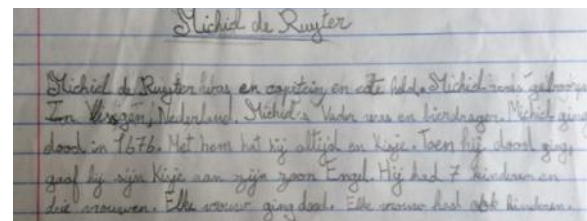 Michiel de Ruyter
Michiel de Ruyter was en capitein en echte held. Michiel was geboren
In Vlissigen, Nederland. Michiel's Vader was en bierdrager. Michiel ging
dood in 1676. Met hem hat hij altijd en Kisje. Toen hij dood ging,
gaf hij sijn Kisje aan zijn zoon Engel. Hij had 7 kinderen en
drie vrouwen. Elke vrouw ging dood. Elke vrouw had ook kinderen.